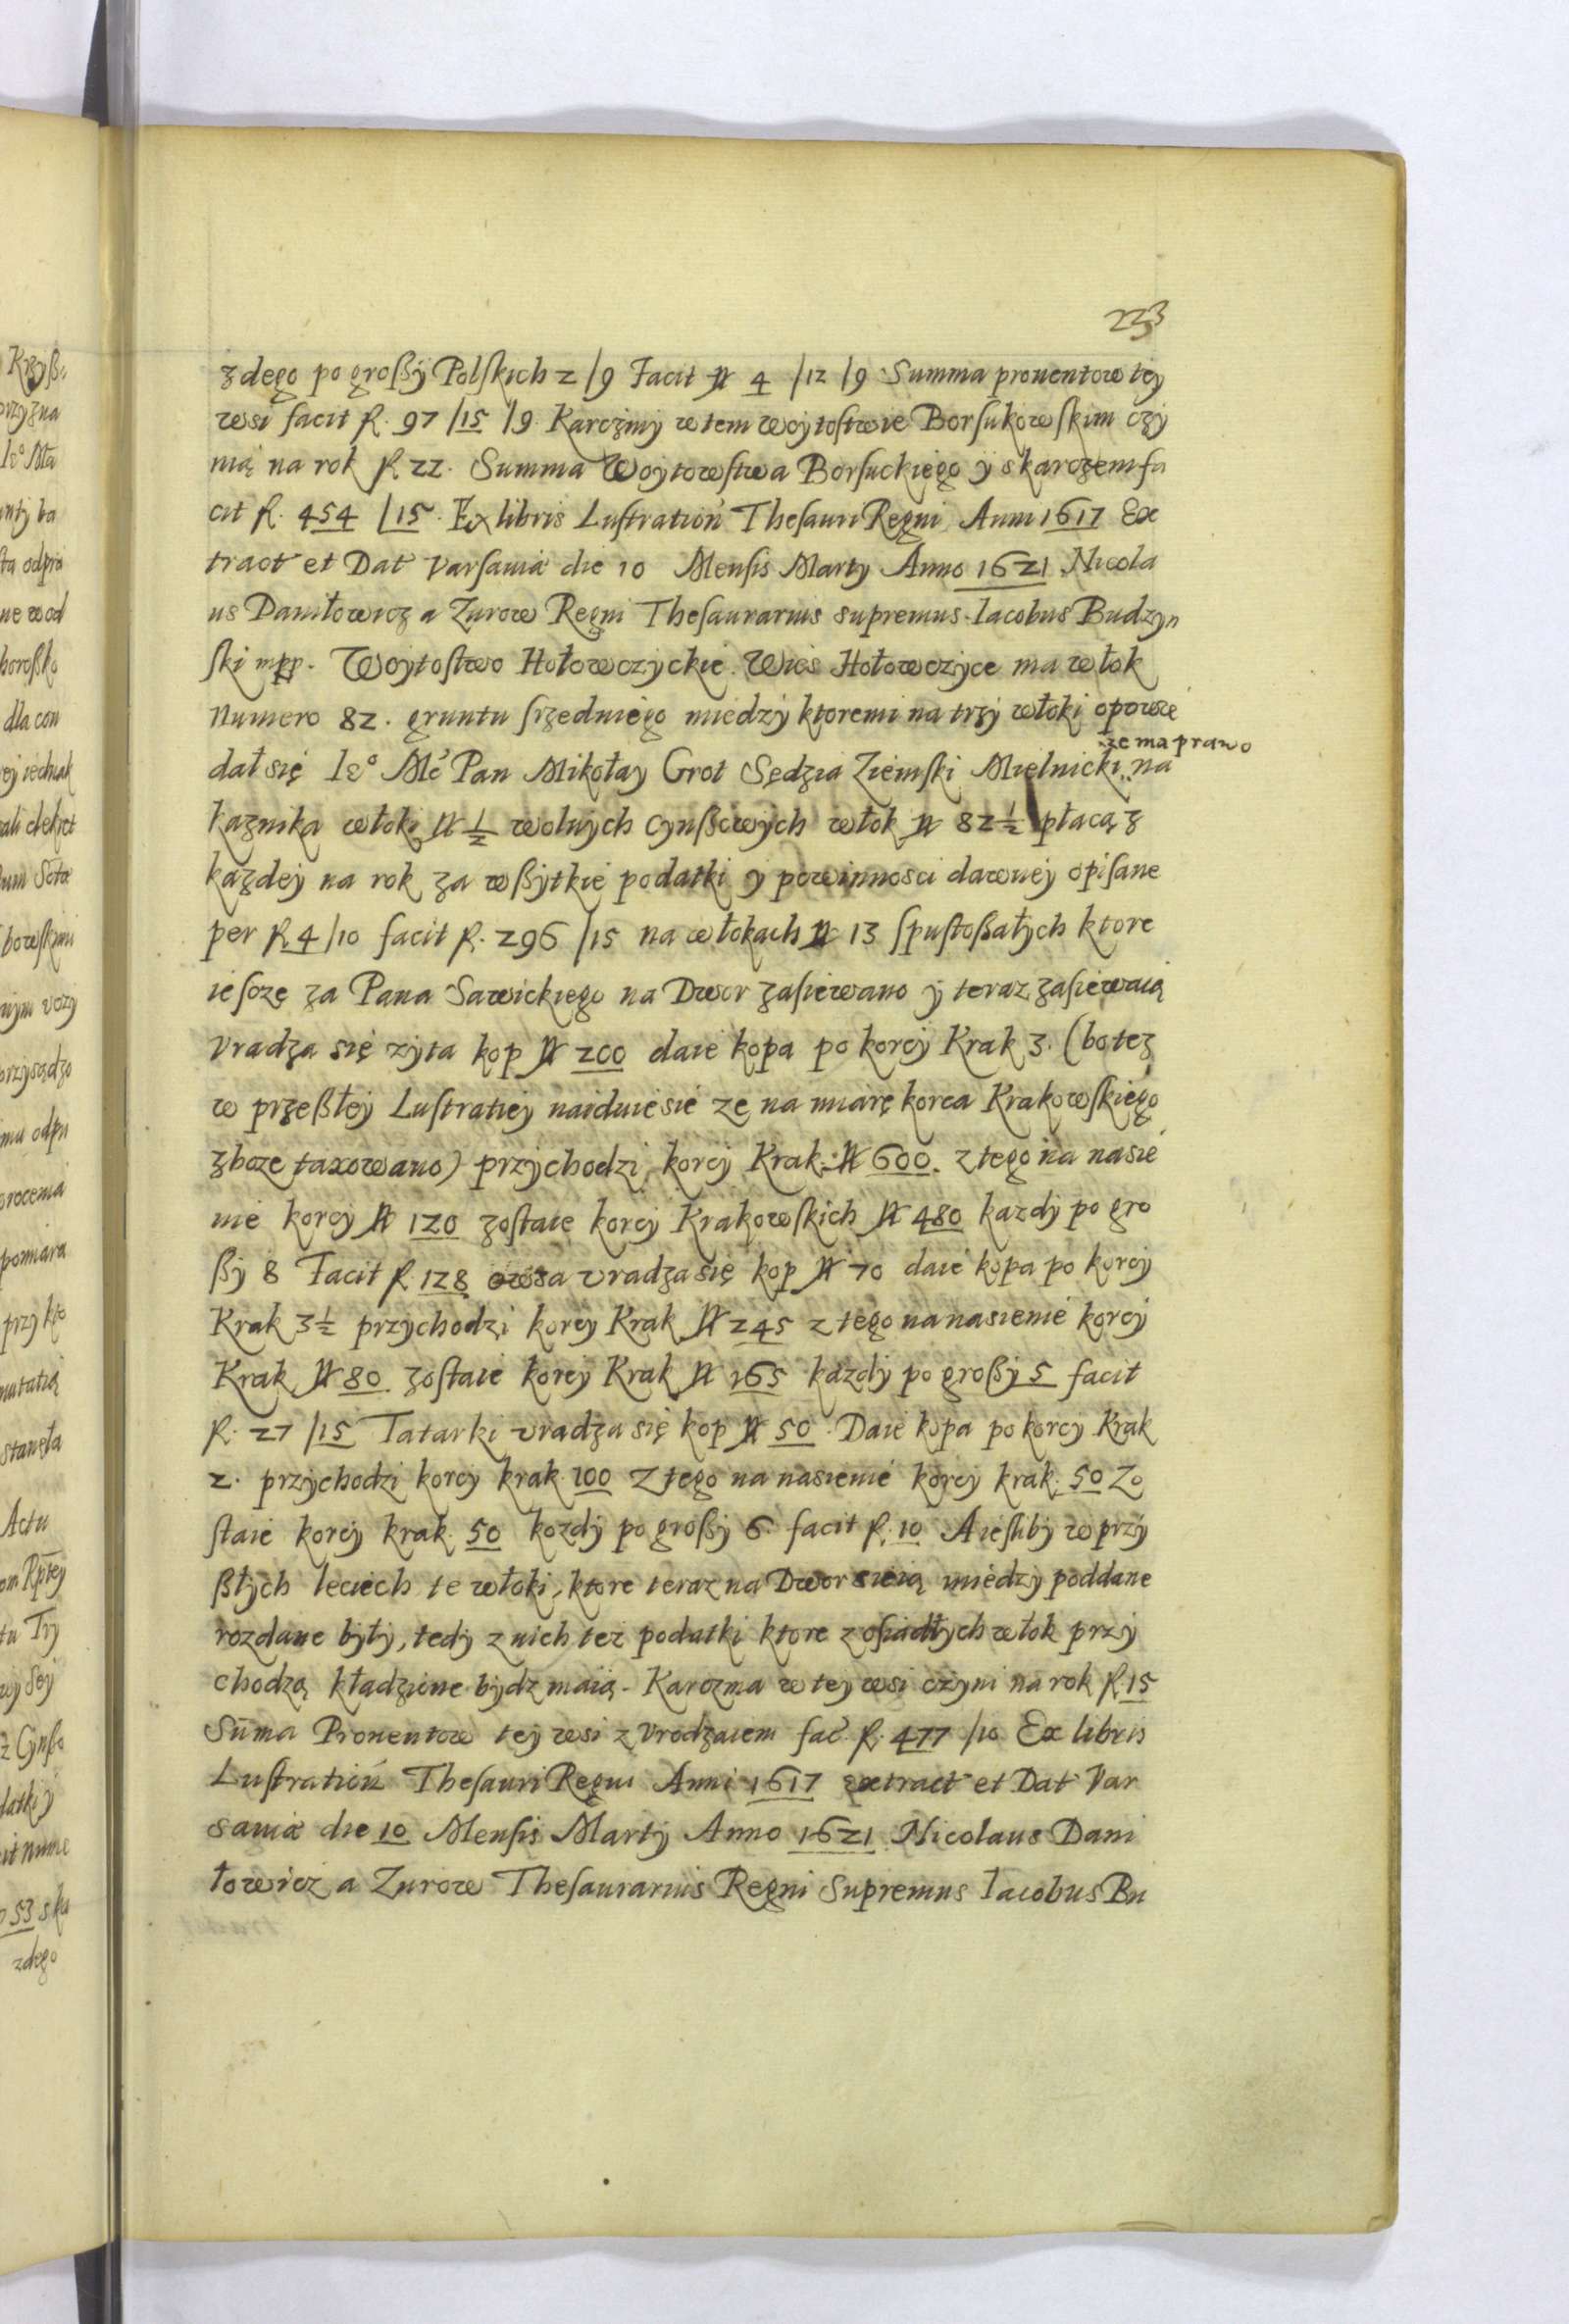 233
Krzyß
przyzna
Ie° Mła
ta odpra
dla con
ey iednak
ali dekret
bowskimi
przysądzo
pomiara
przy kto
stanęła
Actu
latki y
53 ska
zdego
zdego po großÿ Polskich 2 /9 Facit N 4 /12 /9 Summa prouentow teÿ
wsi facit f. 97 /15 /9 Karczmÿ w tem woÿtostwie Borsukowskim czÿ
nią na rok f. 22. Summa Woÿtowstwa Borsuckiego ÿ skarczem fa
cit f. 454 /15. Ex libris Lustration Thesauri Regni Anni 1617 Ex
tract et Dat Varsauiæ die 10 Mensis Martÿ Anno 1621 Nicola
us Daniłowicz a Zurow Regni Thesaurarius supremus. Iacobus Budzyn
ski mpp. Woÿtostwo Hołowczyckie. Wieś Hołowczÿce ma włok
Numero 82. gruntu srzedniego miedzÿ ktoremi na trzÿ włoki opowie
że ma prawo
dał się Ie° Mć Pan Mikołaÿ Grot Sędzia Ziemski Mielnicki na
kaznika włoki N ½ wolnÿch cynßowÿch włok N 82½ płacą z
kazdeÿ na rok za wßÿtkie podatki ÿ powinnosci dawneÿ opisane
per f. 4 /10 facit f. 296 /15 na włokach N 13 spustoßałÿch ktore
ieszcze za Pana Sawickiego na Dwor zasiewano ÿ teraz zasiewaią
vradza się zÿta kop N 200 daie kopa po korcÿ Krak 3. (bo tez
w przeßłeÿ Lustratieÿ naiduiesie ze na miarę korca Krakowskiego
zboze taxowano) przÿchodzi korcÿ Krak. N 600. z tego na nasie
nie korcÿ N 120 zostaie korcÿ Krakowskich N 480 kazdÿ po gro
ßÿ 8 Facit f. 128 owsa vradza się kop N 70 daie kopa po korcÿ
Krak 3½ przÿchodzi korcÿ Krak N 245 z tego na nasienie korcÿ
Krak N 80 zostaie korcÿ Krak N 165 kazdÿ po großÿ 5 facit
f. 27 /15 Tatarki vradza się kop N 50. Daie kopa po korcÿ Krak
2. przÿchodzi korcÿ krak. 100 Z tego na nasienie korcÿ krak. 50 Zo
staie korcÿ krak. 50 kozdÿ po großÿ 6. facit f. 10 A iesliby w przÿ
ßłÿch leciech te włoki, ktore teraz na Dwor sieią miedzÿ poddane
rozdane bÿłÿ, tedÿ z nich tez podatki ktore z osiadłÿch włok przÿ
chodzą kładzione bÿdz maią. Karczma w teÿ wsi czÿni na rok f. 15
Sūma Prouentow teÿ wsi z vrodzaiem fać f. 477 /10 Ex libris
Lustration Thesauri Regni Anni 1617 extract et Dat Var
sauiæ die 10 Mensis Martÿ Anno 1621 Nicolaus Dani
łowicz a Zurow Thesaurarius Regni Supremus Iacobus Bu